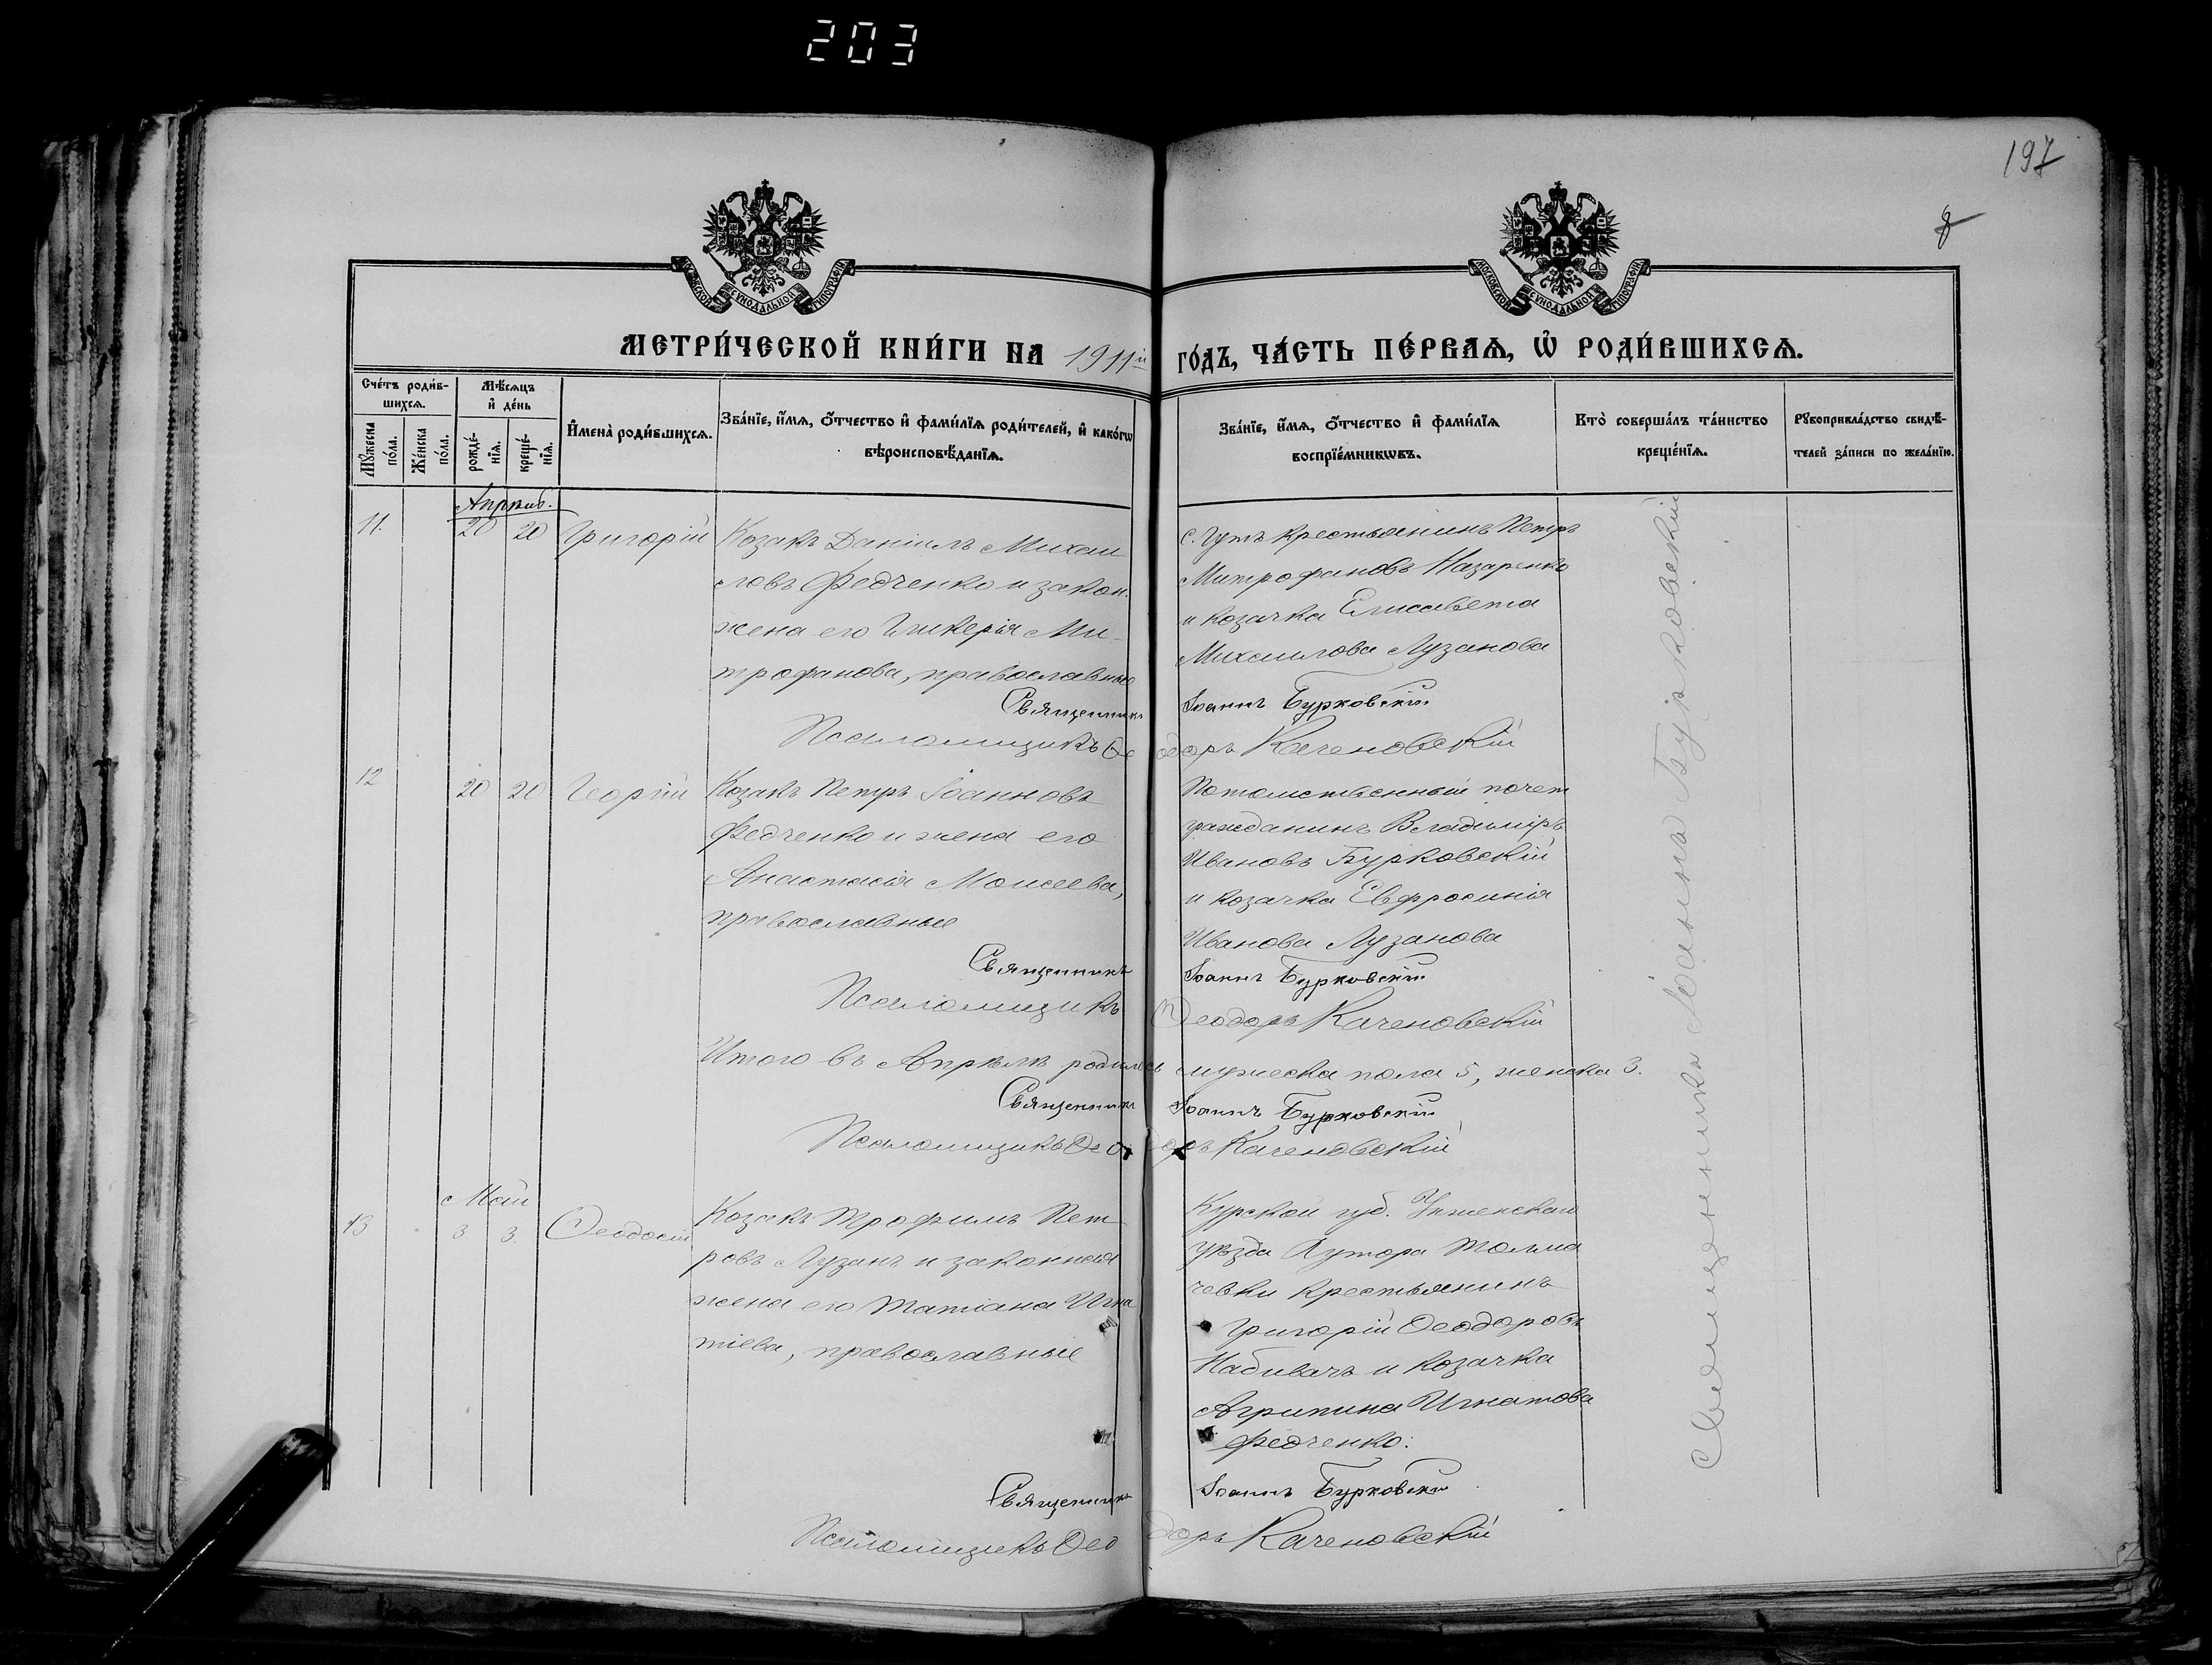 203
197
8
МОСКОВСКОЙ СѴНОДАЛЬНОЙ ТИПОГРАФІИ
МОСКОВСКОЙ СѴНОДАЛЬНОЙ ТИПОГРАФІИ
МЕТРИ́ЧЕСКОЙ КНИ́ГИ НА 1911й ГО́ДЪ, ЧА́СТЬ ПЕ́РВАЯ, Ѡ РОДИ́ВШИХСЯ.
Сче́тъ роди́в-
шихся.
Мѣ́сяцъ
и де́нь
Му́жеска по́ла.
Же́нска по́ла.
рожде́-
нїя.
креще́-
нїя.
И҆мена̀ роди́вшихся.
Зва́нїе, и҆́мя, ѻ҆́тчество и҆ фами́лїя роди́телей, и҆ како́гѡ
вѣроисповѣ́данїя.
Зва́нїе, и҆́мя, ѻ҆́тчество и҆ фами́лїя
воспрїе́мникѡвъ.
Кто̀ соверша́лъ та́инство
креще́нїя.
Рꙋкоприкла́дство свидѣ́-
телей за́писи по жела́нїю.
Апрѣль.
11. 20 20 Григорій
Козакъ Даніилъ Михаи
ловъ Федченко и закон.
жена его Гликерія Ми-
трофанова, православные
с. Гутъ крестьянинъ Петръ
Митрофановъ Назаренко
и козачка Елисавета
Михаилова Лузанова
Священникъ Іоаннъ Бурковскій
Псаломщикъ Ѳеодоръ Каченовскій
12 20 20 Георгій
Козакъ Петръ Іоанновъ
Федченко и жена его
Анастасія Моисеева,
православные
Потомственный почет
гражданинъ Владиміръ
Ивановъ Бурковскій
и козачка Евфросинія
Иванова Лузанова
Священникъ Іоаннъ Бурковскій
Псаломщикъ Ѳеодоръ Каченовскій
Итого въ Апрѣлѣ родилось мужеска пола 5, женска 3.
Священникъ Іоаннъ Бурковскій
Псаломщикъ Ѳеодоръ Каченовскій
Май
13 3 3. Ѳеодосій
Козакъ Трофимъ Пет
ровъ Лузанъ и законная
жена его Татіана Игна
тіева, православные
Курской губ.
уѣзда Хутора Толма
чевки крестьянинъ
Григорій Ѳеодоровъ
Набивачъ и козачка
Агрипина Игнатова
Федченко.
Священникъ Іоаннъ Бурковскій
Псаломщикъ Ѳеодоръ Каченовскій
Священникъ Іоаннъ Бурковскій